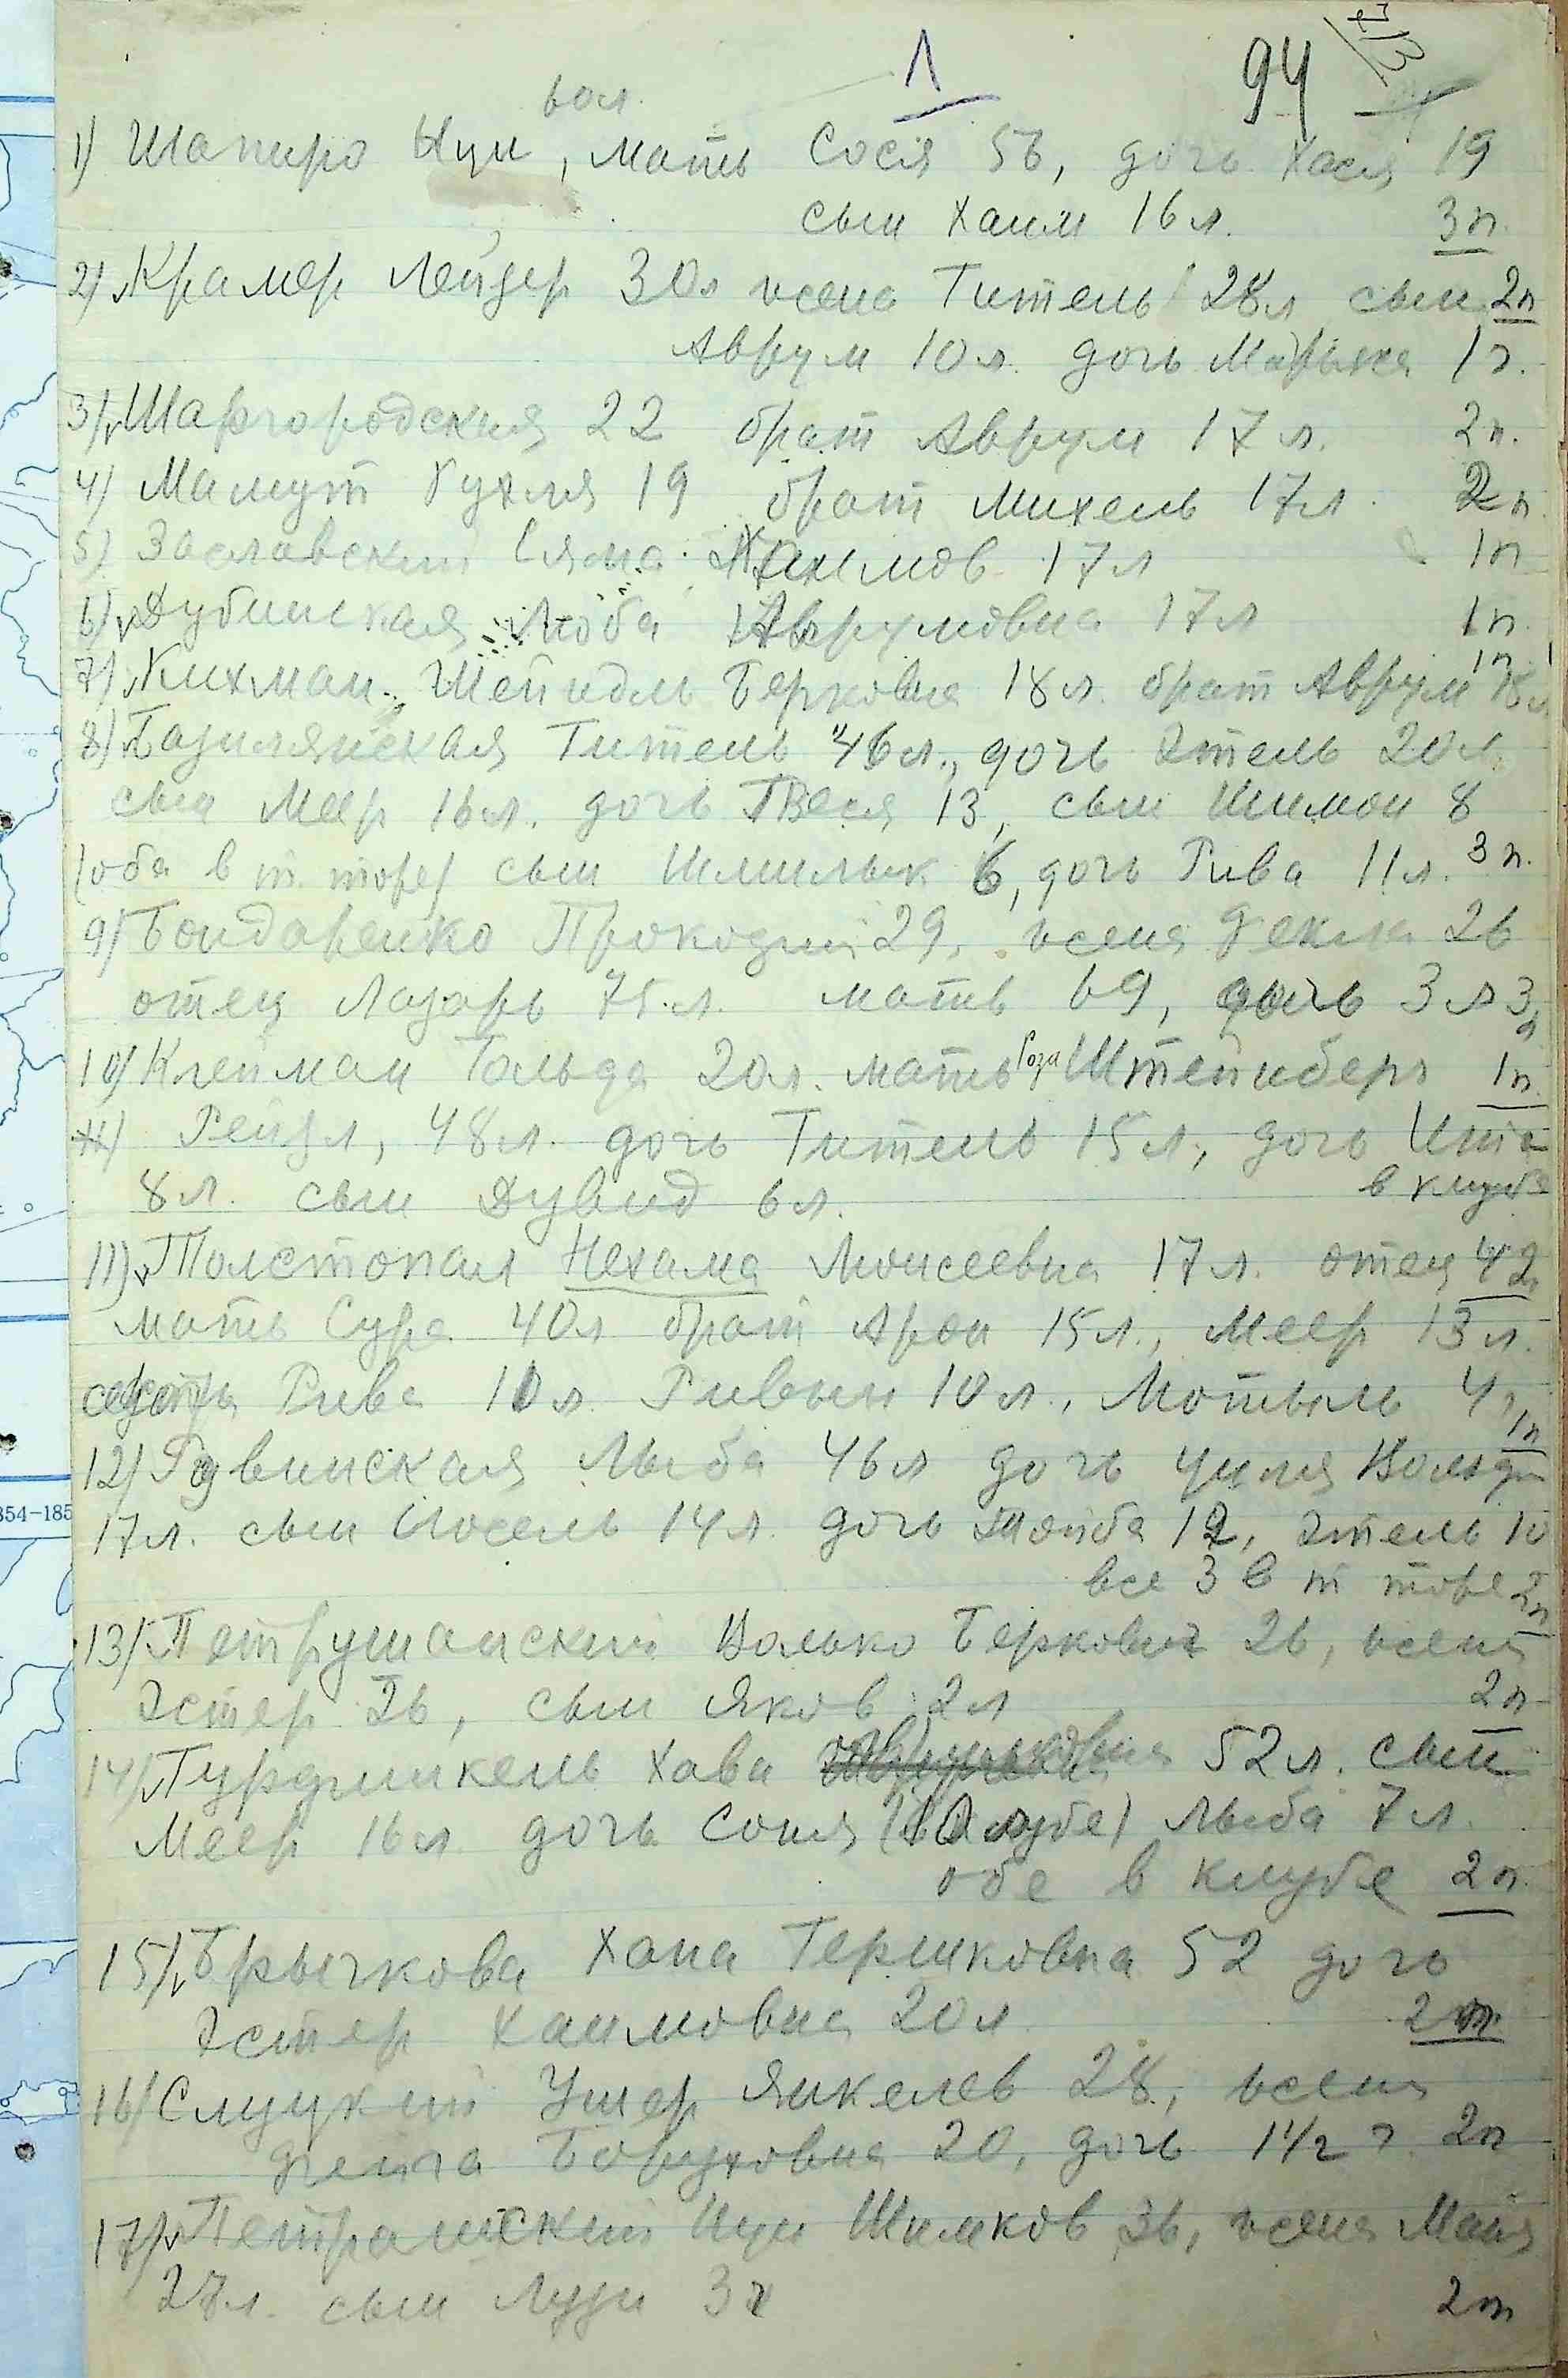 1
94
213
вол.
1) Шапиро Нун, мать Сося 56, дочь Хася 19
сын Хаим 16 л. 3 п.
2) Крамер Лейзер 30 л жена Титель 28 л сын 2 п
Аврум 10 л. дочь Марьяса 1 г.
3) Шаргородския 22 брат Аврум 17 л. 2 п.
4) Мамут Рухля 19 брат Михель 17 л. 2 п
5) Заславский Сяма Хаимов 17 л 1 п
6) Дубинская Люба Аврумовна 17 л 1 п.
7) Кихман Шейндль Берковна 18 л. брат Аврум 1 п.
8) Базилянская Титель 46 л., дочь Этель 20 л,
сын Меер 16 л. дочь Твеся 13, сын Шимон 8
(оба в т. торе) сын Шмилык 6, дочь Рива 11 л. 3 п.
9) Бондаренко Прокофий 29, жена Фекла 26
отец Лазарь 75 л. мать 69, дочь 3 л 3 п
10) Клейман Гольда 20 л. мать Роза Штейнберг 1 п
Рейзл, 48 л. дочь Титель 15 л, дочь Ита
8 л. сын Дувид 6 л. в клубе
11) Толстопал Нехама Моисеевна 17 л. отец 42
мать Сура 40 л брат Арон 15 л., Меер 13 л.
сестра Рива 10 л Ривын 10 л., Мотыль 4,
1 п
12) Рувинская Лыба 46 л дочь Циля
17 л. сын Иосель 14 л. дочь Тойба 12, Этель 10
все 3 в т торе 2 п
13) Петрушанский Волько Беркович 26, жена
Эстер 26, сын Яков 2 л 2 п
14) Гурфинкель Хава 52 л. сын
Меер 16 л дочь Соня Лыба 7 л.
обе в клубе 2 п
15) Брычкова Хана Гершковна 52 дочь
Эстер Хаимовна 20 л 2 п.
16) Слуцкий Ушер Янкелев 28, жена
Фейга Боруховна 20, дочь 1 1/2 г. 2 п
17) Петрашский Нун Шимков 36, жена Маня
28 л. сын Лузи 3 г 2 п
354-185